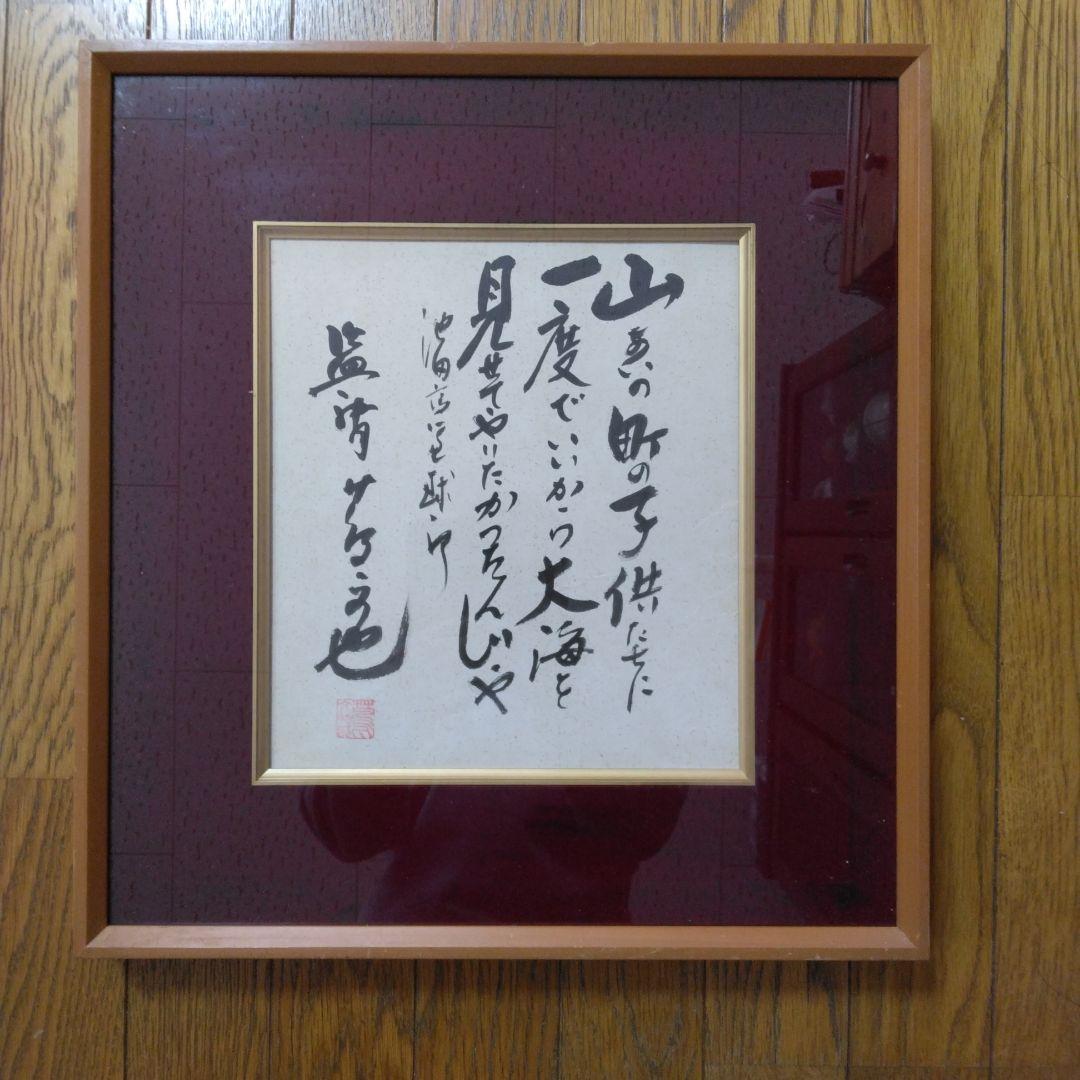 山あいの町の子供たちに
一度でいいから大海を
見せてやりたかったんじゃ
池田高 野球部
監督 蔦文也